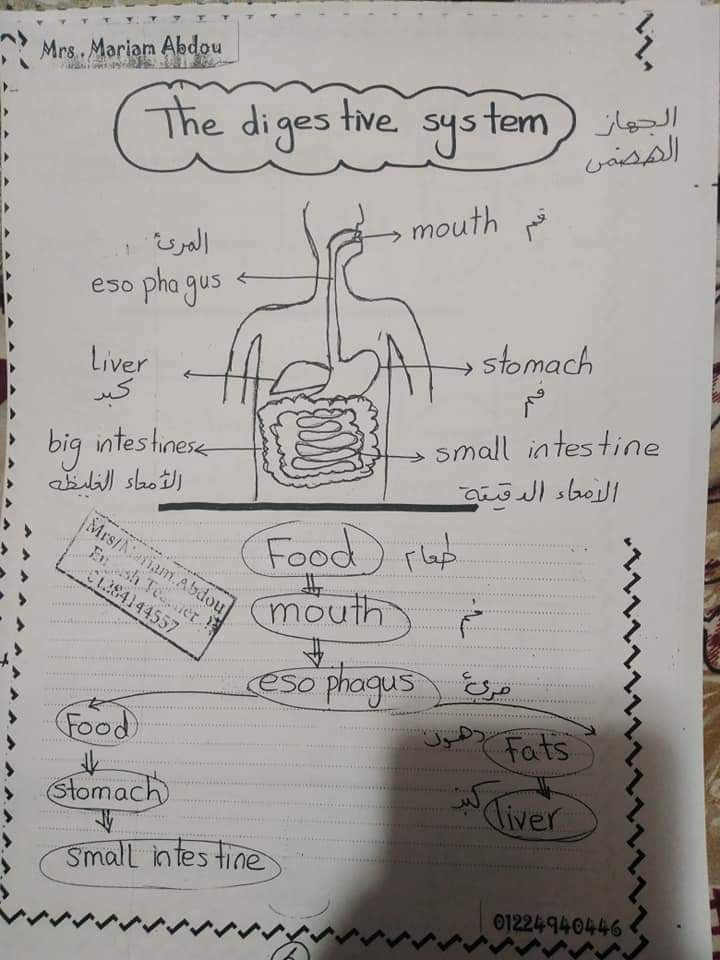 Mrs. Mariam Abdou
The digestive system
الجهاز
الهضمى
mouth فم
المرئ
esophagus
liver
كبد
stomach
فم
big intestines
الأمعاء الغليظه
small intestine
الأمعاء الدقيقة
Mrs/Mariam Abdou
English Teacher
01284144557
Food طعام
mouth فم
esophagus مرئ
Food
stomach
small intestine
دهون Fats
كبد liver
01224940446